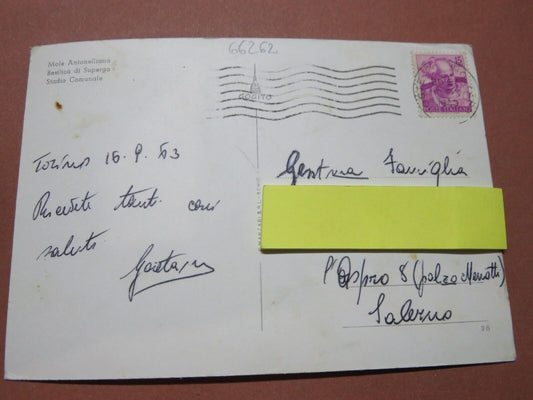 66262
Mole Antonelliana
Basilica di Superga
Stadio Comunale
Torino 16.9.63
Ricevete tanti cari
saluti
Gaetano
Gent.ma Famiglia
8 (palazzo Menotti)
Salerno
POSTE ITALIANE